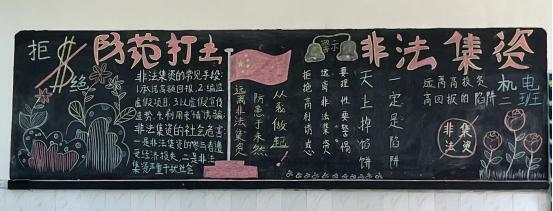 拒绝
防范打击
非法集资
非法集资的常见手段:
1.承诺高额回报,2.编造
虚假项目,3.以虚假宣传
造势,4.利用亲情诱骗
非法集资的社会危害:
一是非法集资的参与者遭
受经济损失,二是非法
集资严重干扰社会
远离非法集资
防患于未然
从我做起!
警示
拒绝高利诱惑
远离非法集资
要理性要警惕
天上掉馅饼
一定是陷阱
高回报的陷阱
机电
二班
非法
集资